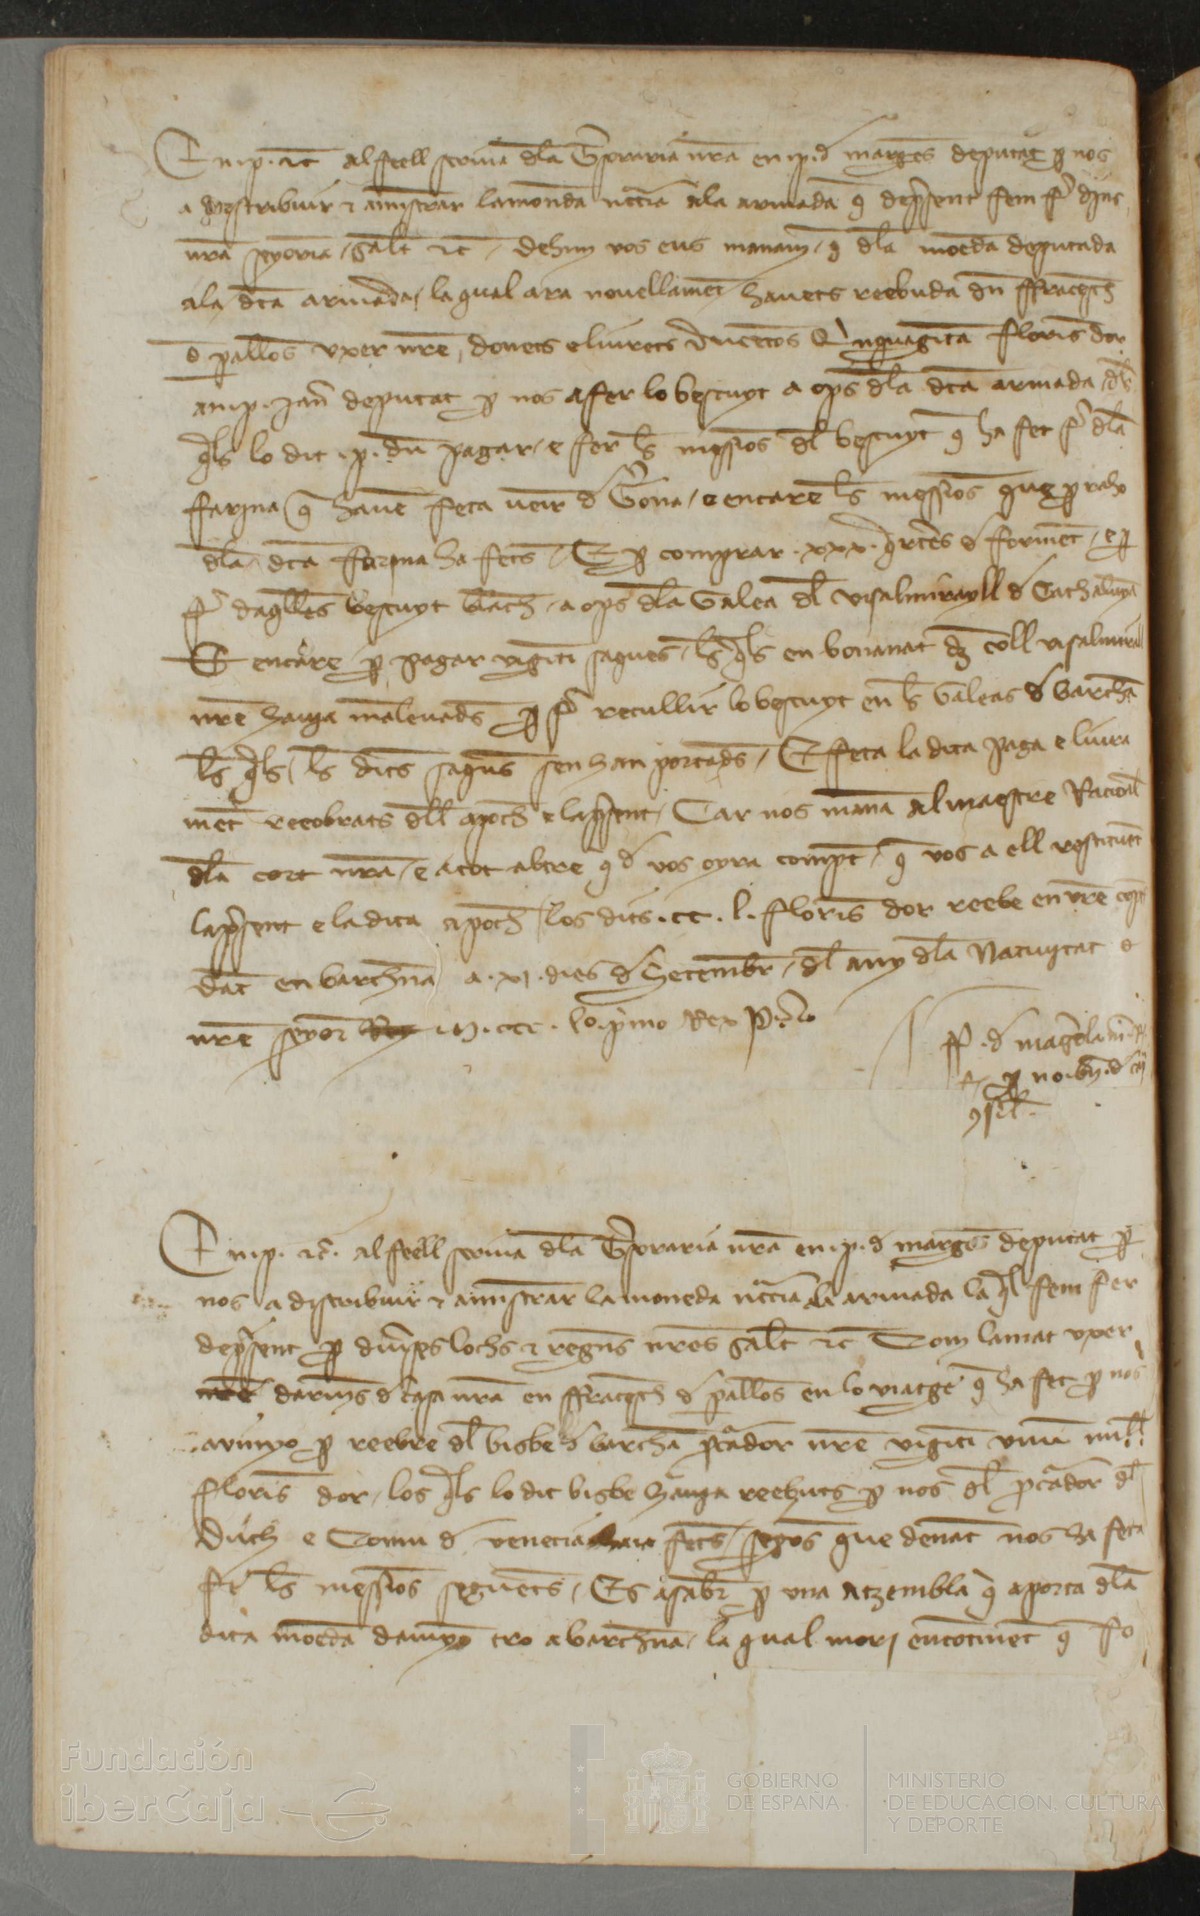 En .p. etc al feell scriva dla Thesoraria nra en .p. d marges deputat p nos
a destribuir e aministrar la moneda nccia a la armada q depsent fem fr dins
nra senyoria salt etc Dehim vos eus manam q dla moeda deputada
a la dca armada la qual ara novellamet havets reebuda dn ffracesch
d pallos uxer nre donets e liurets Ducetos Qinquagita floris dor
an .p. jan deputat p nos a fer lo bescuyt a ops dla dca armada dls
qls lo dit .p. dn pagar e fer ls messios dl bescuyt q ha fet fr dla
farina q have feta venir d Gerona e encare ls messios que p raho
dla dca farina ha fets E p comprar .xxx. qrtes d forment e p
fr daqlles bescuyt blach a ops dla Galea dl visalmirayll d Cathalunya
E encare p pagar viginti saques ls qls en bonanat dz coll visalmirall
nre havya malevads p fr recullir lo bescuyt en ls Galeas d barchna
ls qls ls dits saques sen han portads E feta la dita paga e liura
met recobrats dll apoch e la psent Car nos mana al maestre Racional
dla cort nra e a tot altre q d vos oyra compte q vos a ell restituet
la psent e la dita apoch los dits .cc. l. floris dor reebe en vre copte
Dat en barchna a .xi. dies d Setembr dl any dla Nativitat d
nre senyor M.ccc. lo. pmo Rex P.
ff. d magcla
p no. bn. d
csil.
En .p. etc. al feell scriva dla Thesoraria nra en .p. d marges deputat p
nos a destribuir e aministrar la moneda nccia a la armada la ql fem fer
depsent p diuses lochs e regns nres salt etc Com lamat uxer
nre darmes d casa nra en ffracesch d pallos en lo viatge q ha fet p nos
avinyo p reebre dl bisbe d barchna pcador nre viginti unu mill
floris dor los qls lo dit bisbe havya reebuts p nos dl pcador dl
Duch e Comu d venecia fets segos que denat nos ha feta
fe ls messios seguets Es asabr p una atzembla q aporta dla
dita moeda davinyo tro a barchna la qual mori encotinet q fo
Fundación
iberCaja
GOBIERNO
DE ESPAÑA
MINISTERIO
DE EDUCACIÓN, CULTURA
Y DEPORTE